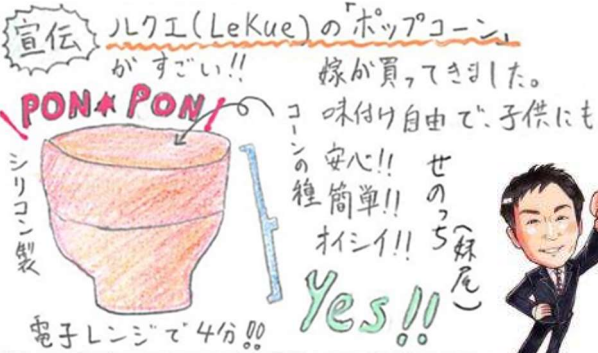 宣伝
ルクエ(LeKue)の「ポップコーン」
がすごい!!
嫁が買ってきました。
味付け自由で、子供にも
安心!!
簡単!!
オイシイ!!
せのっち
(妹尾)
PON★PON
コーンの種
シリコン製
電子レンジで4分!!
Yes!!